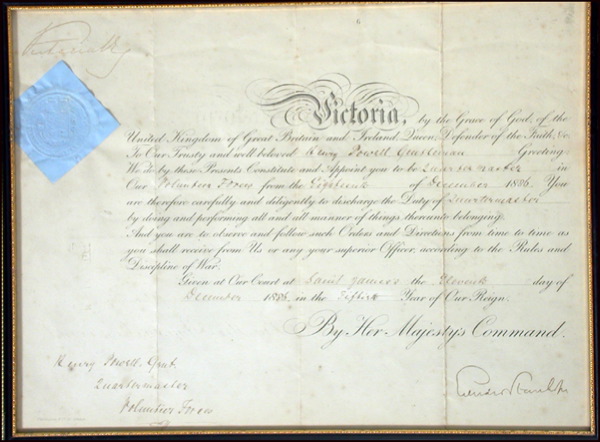 Victoria
Victoria, by the Grace of God, of the
United Kingdom of Great Britain and Ireland Queen, Defender of the Faith, &c.
To Our Trusty and well beloved Henry Powell Gentleman Greeting
We do by these Presents Constitute and Appoint you to be Quartermaster in
Our Volunteer Forces from the Eighteenth of December 1886. You
are therefore carefully and diligently to discharge the Duty of Quartermaster
by doing and performing all and all manner of things thereunto belonging.
And you are to observe and follow such Orders and Directions from time to time as
you shall receive from Us or any your superior Officer, according to the Rules and
Discipline of War.
Given at Our Court at Saint James's the Eleventh day of
December 1886, in the Fiftieth Year of Our Reign.
By Her Majesty's Command.
Henry Powell, Gent
Quartermaster
Volunteer Forces